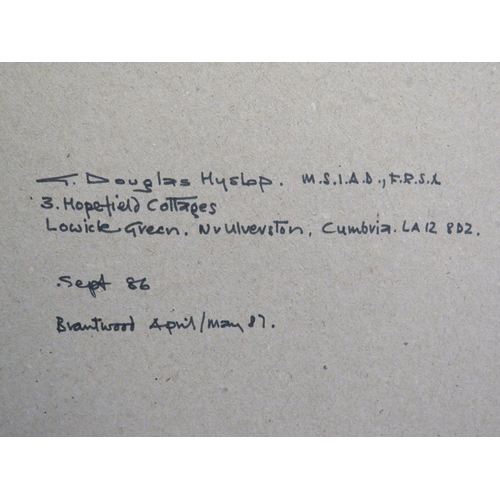 G. Douglas Hyslop. M.S.I.A.D., F.R.S.A
3. Hopefield Cottages
Lowick Green. Nr Ulverston, Cumbria. LA12 8DZ.
Sept 86
Brantwood April/May 87.